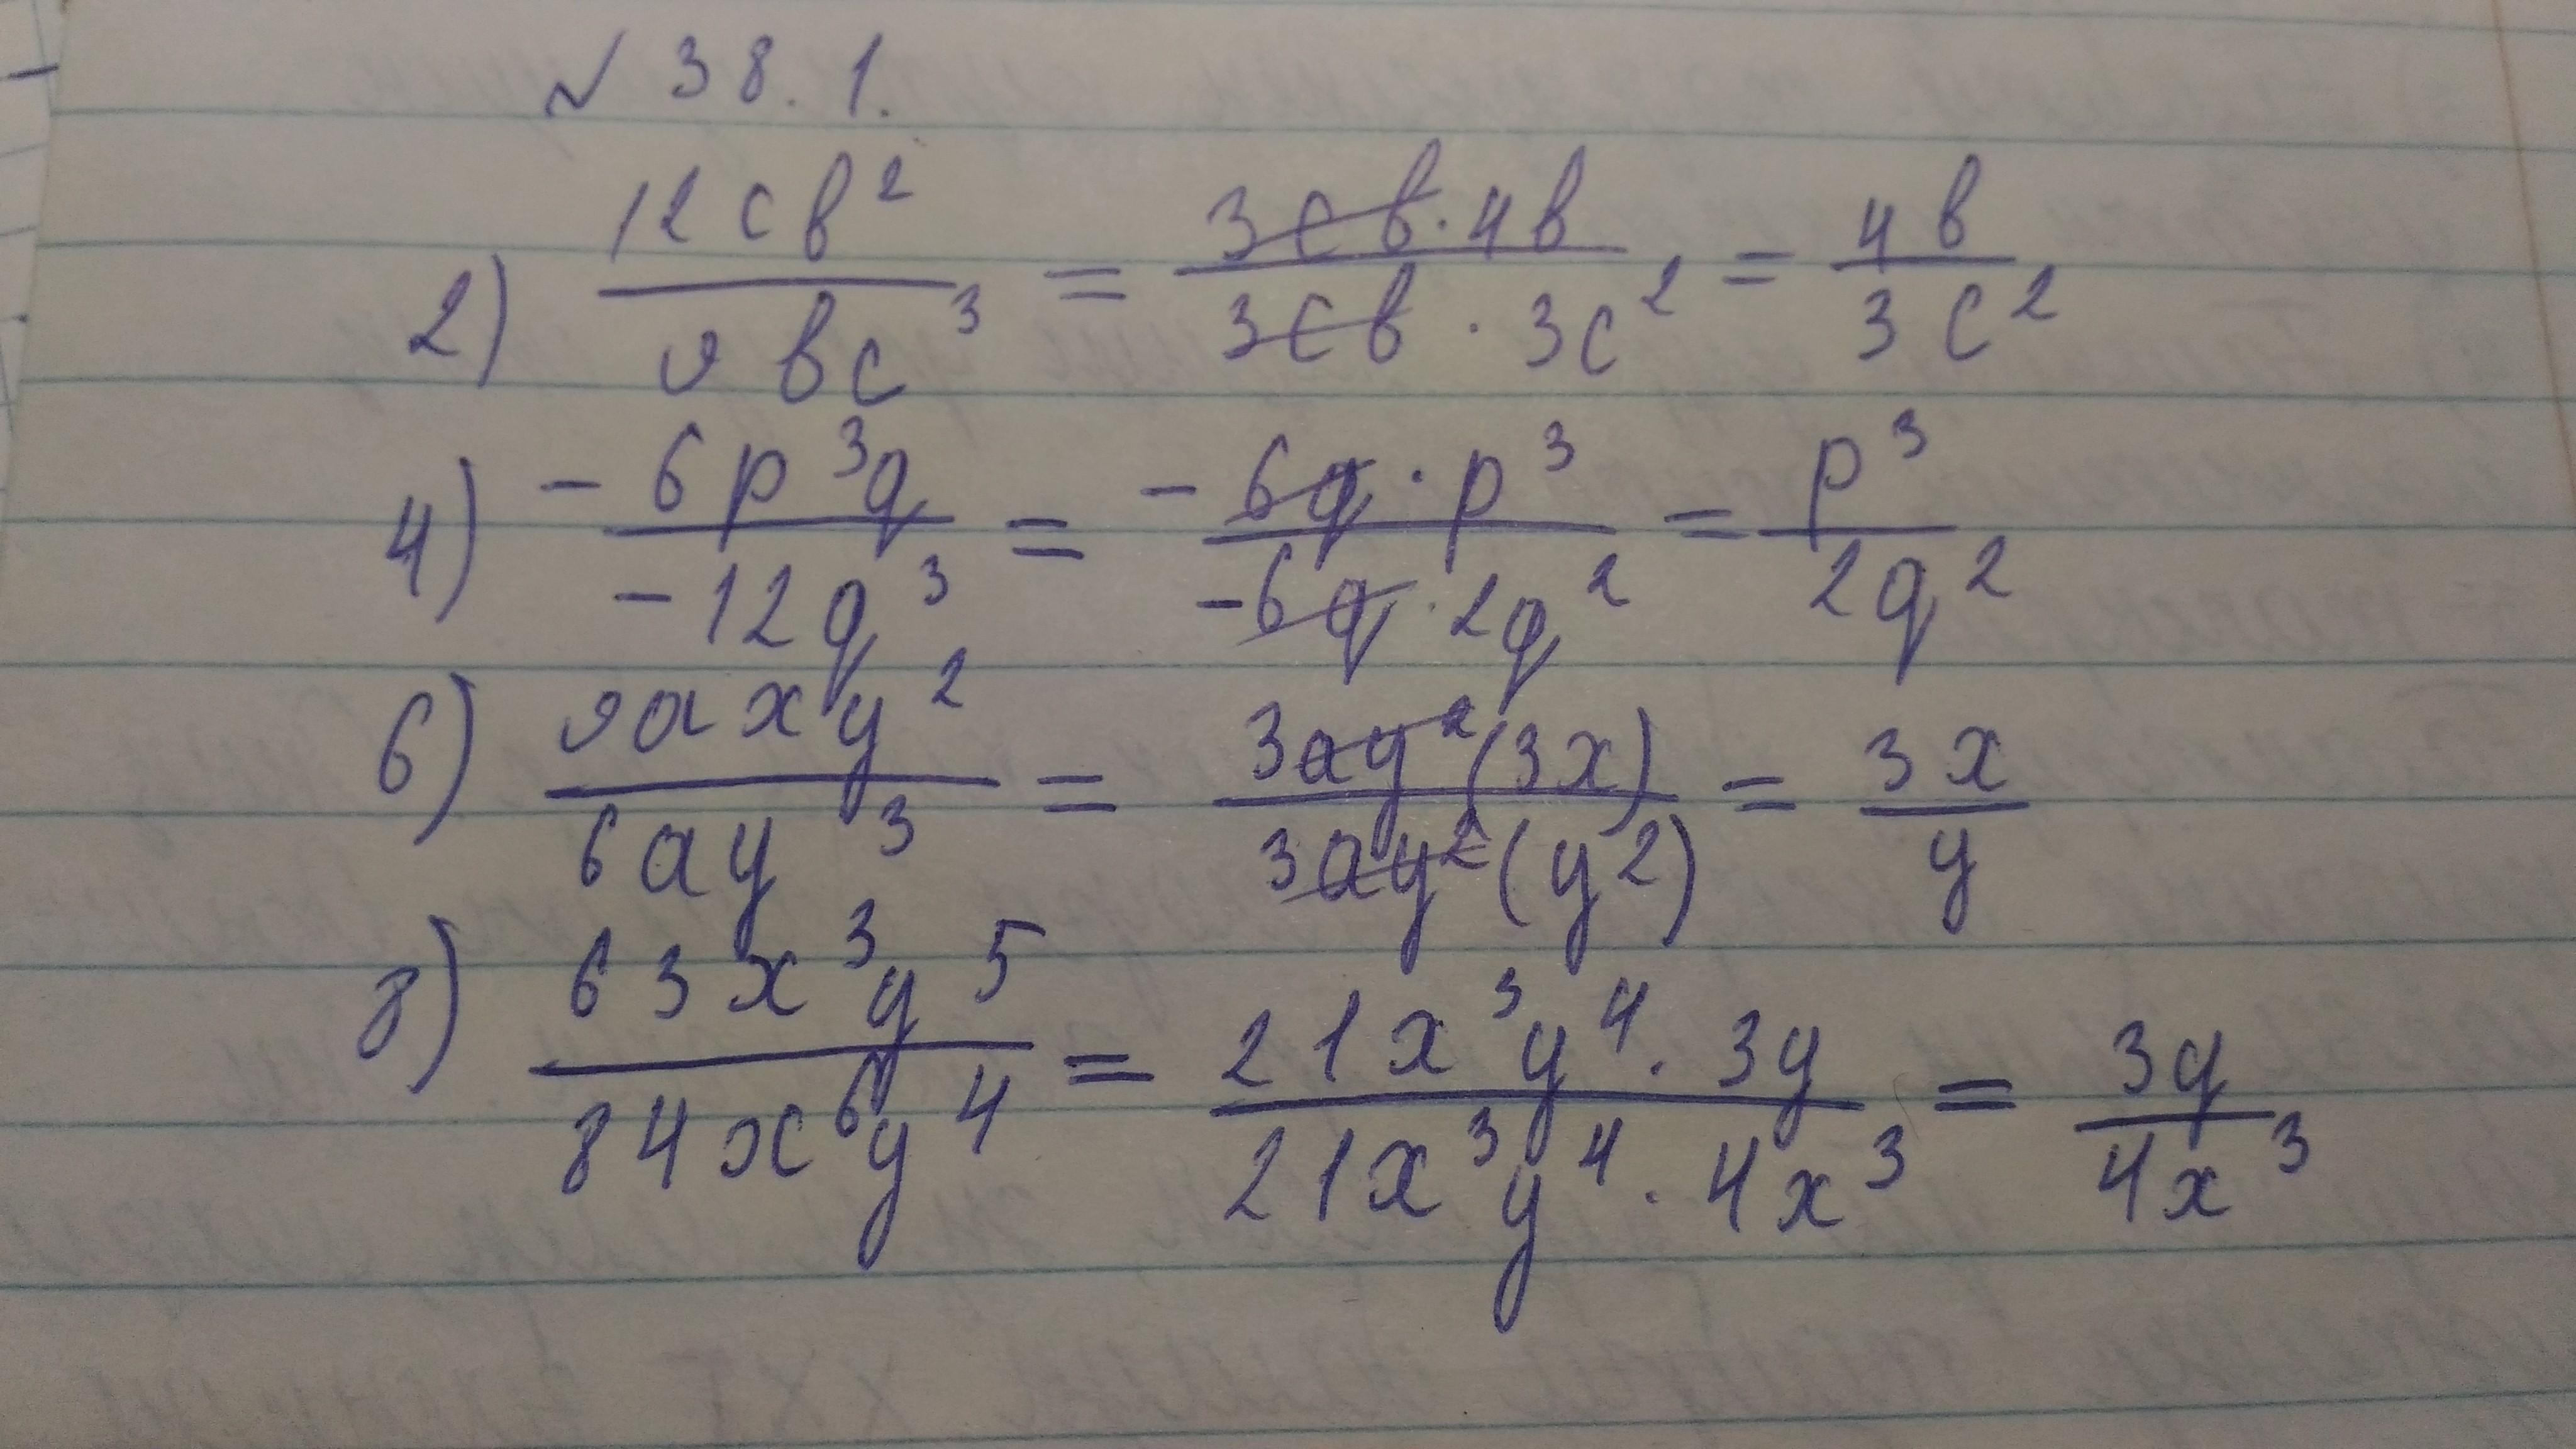 № 38.1.
2) 12cb²/9bc³ = 3cb·4b/3cb·3c² = 4b/3c²
4) -6p³q/-12q³ = -6q·p³/-6q·2q² = p³/2q²
6) 9axy²/6ay³ = 3ay²(3x)/3ay²(y2) = 3x/y
8) 63x³y5/84x⁶y⁴ = 21x³y⁴·3y/21x³y⁴·4x³ = 3y/4x³